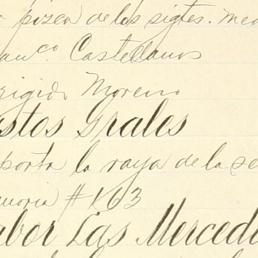 pizca de los sigtes. med
anco. Castellanos
rigido Moreno
astos Grales
porta la raya de la se
emoria # 163
abor Las Mercede